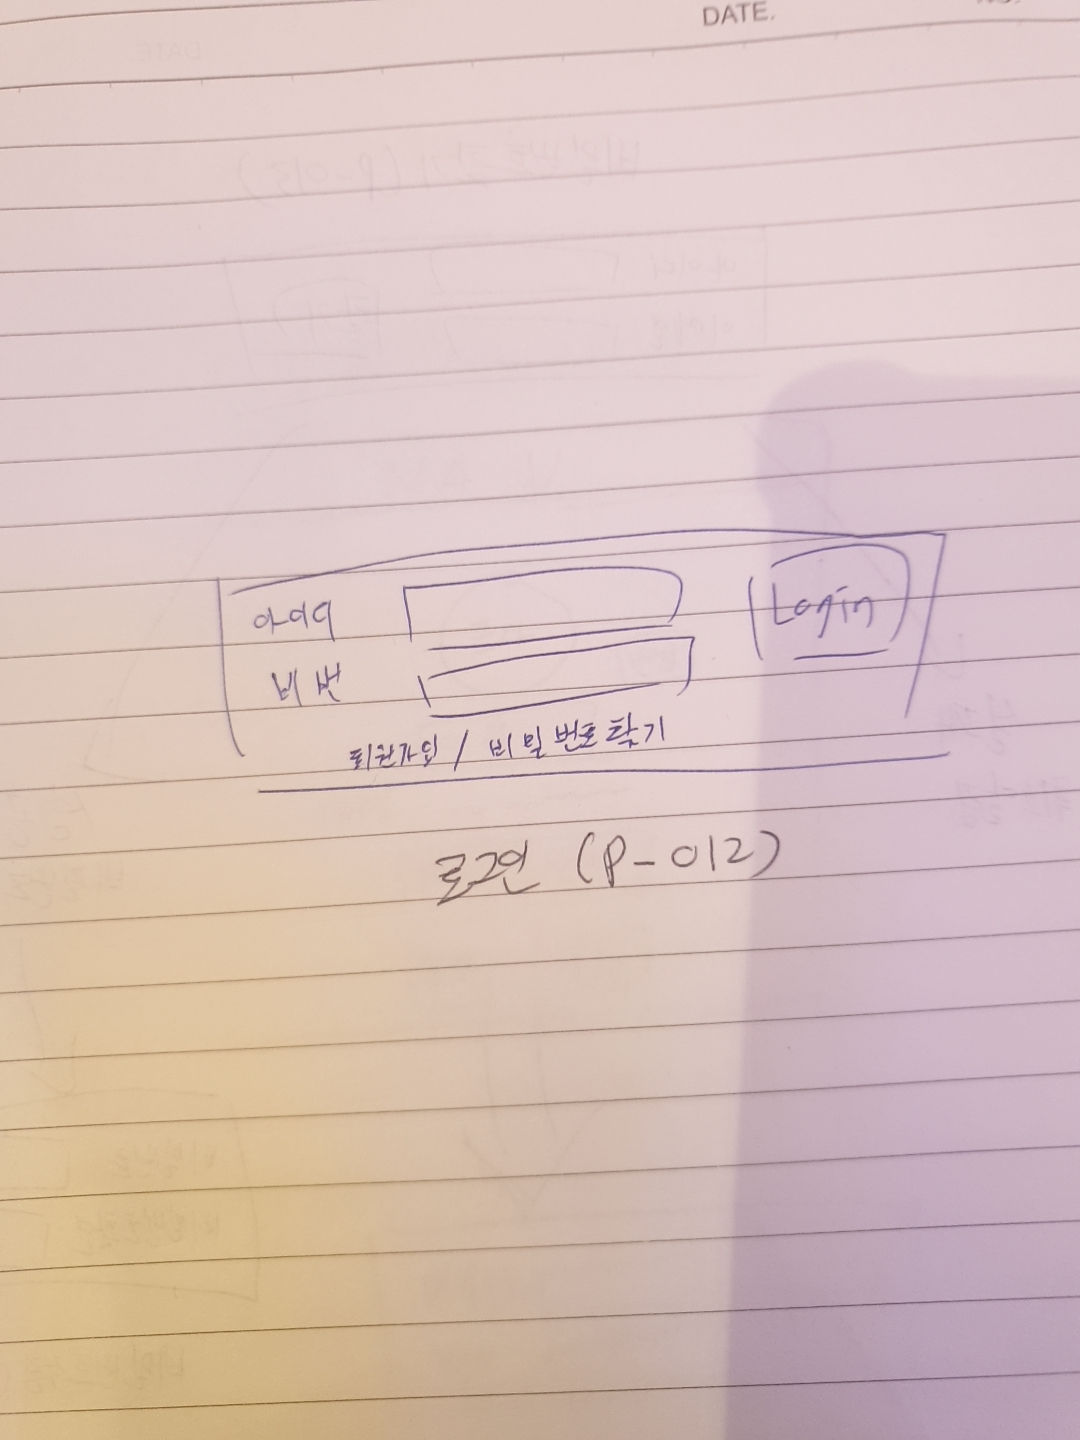 DATE.
아이디
Login
비번
회원가입 / 비밀번호 찾기
로그인 (P-012)